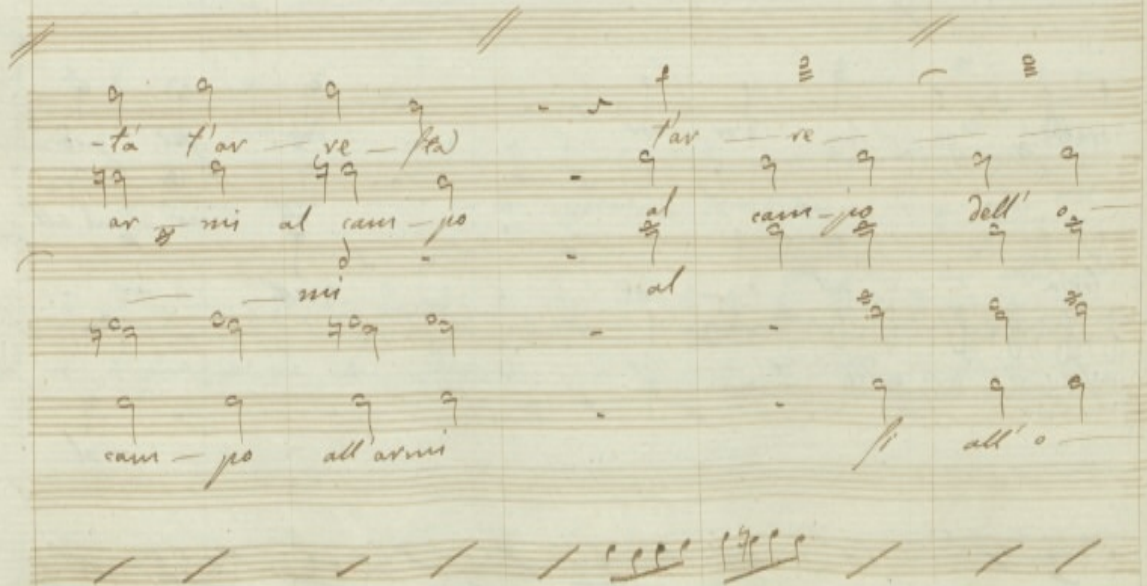 -tà t'ar — re — sta t'ar — re —
ar — mi al cam — po al cam — po dell' o —
— mi al
cam — po all'armi si all' o —